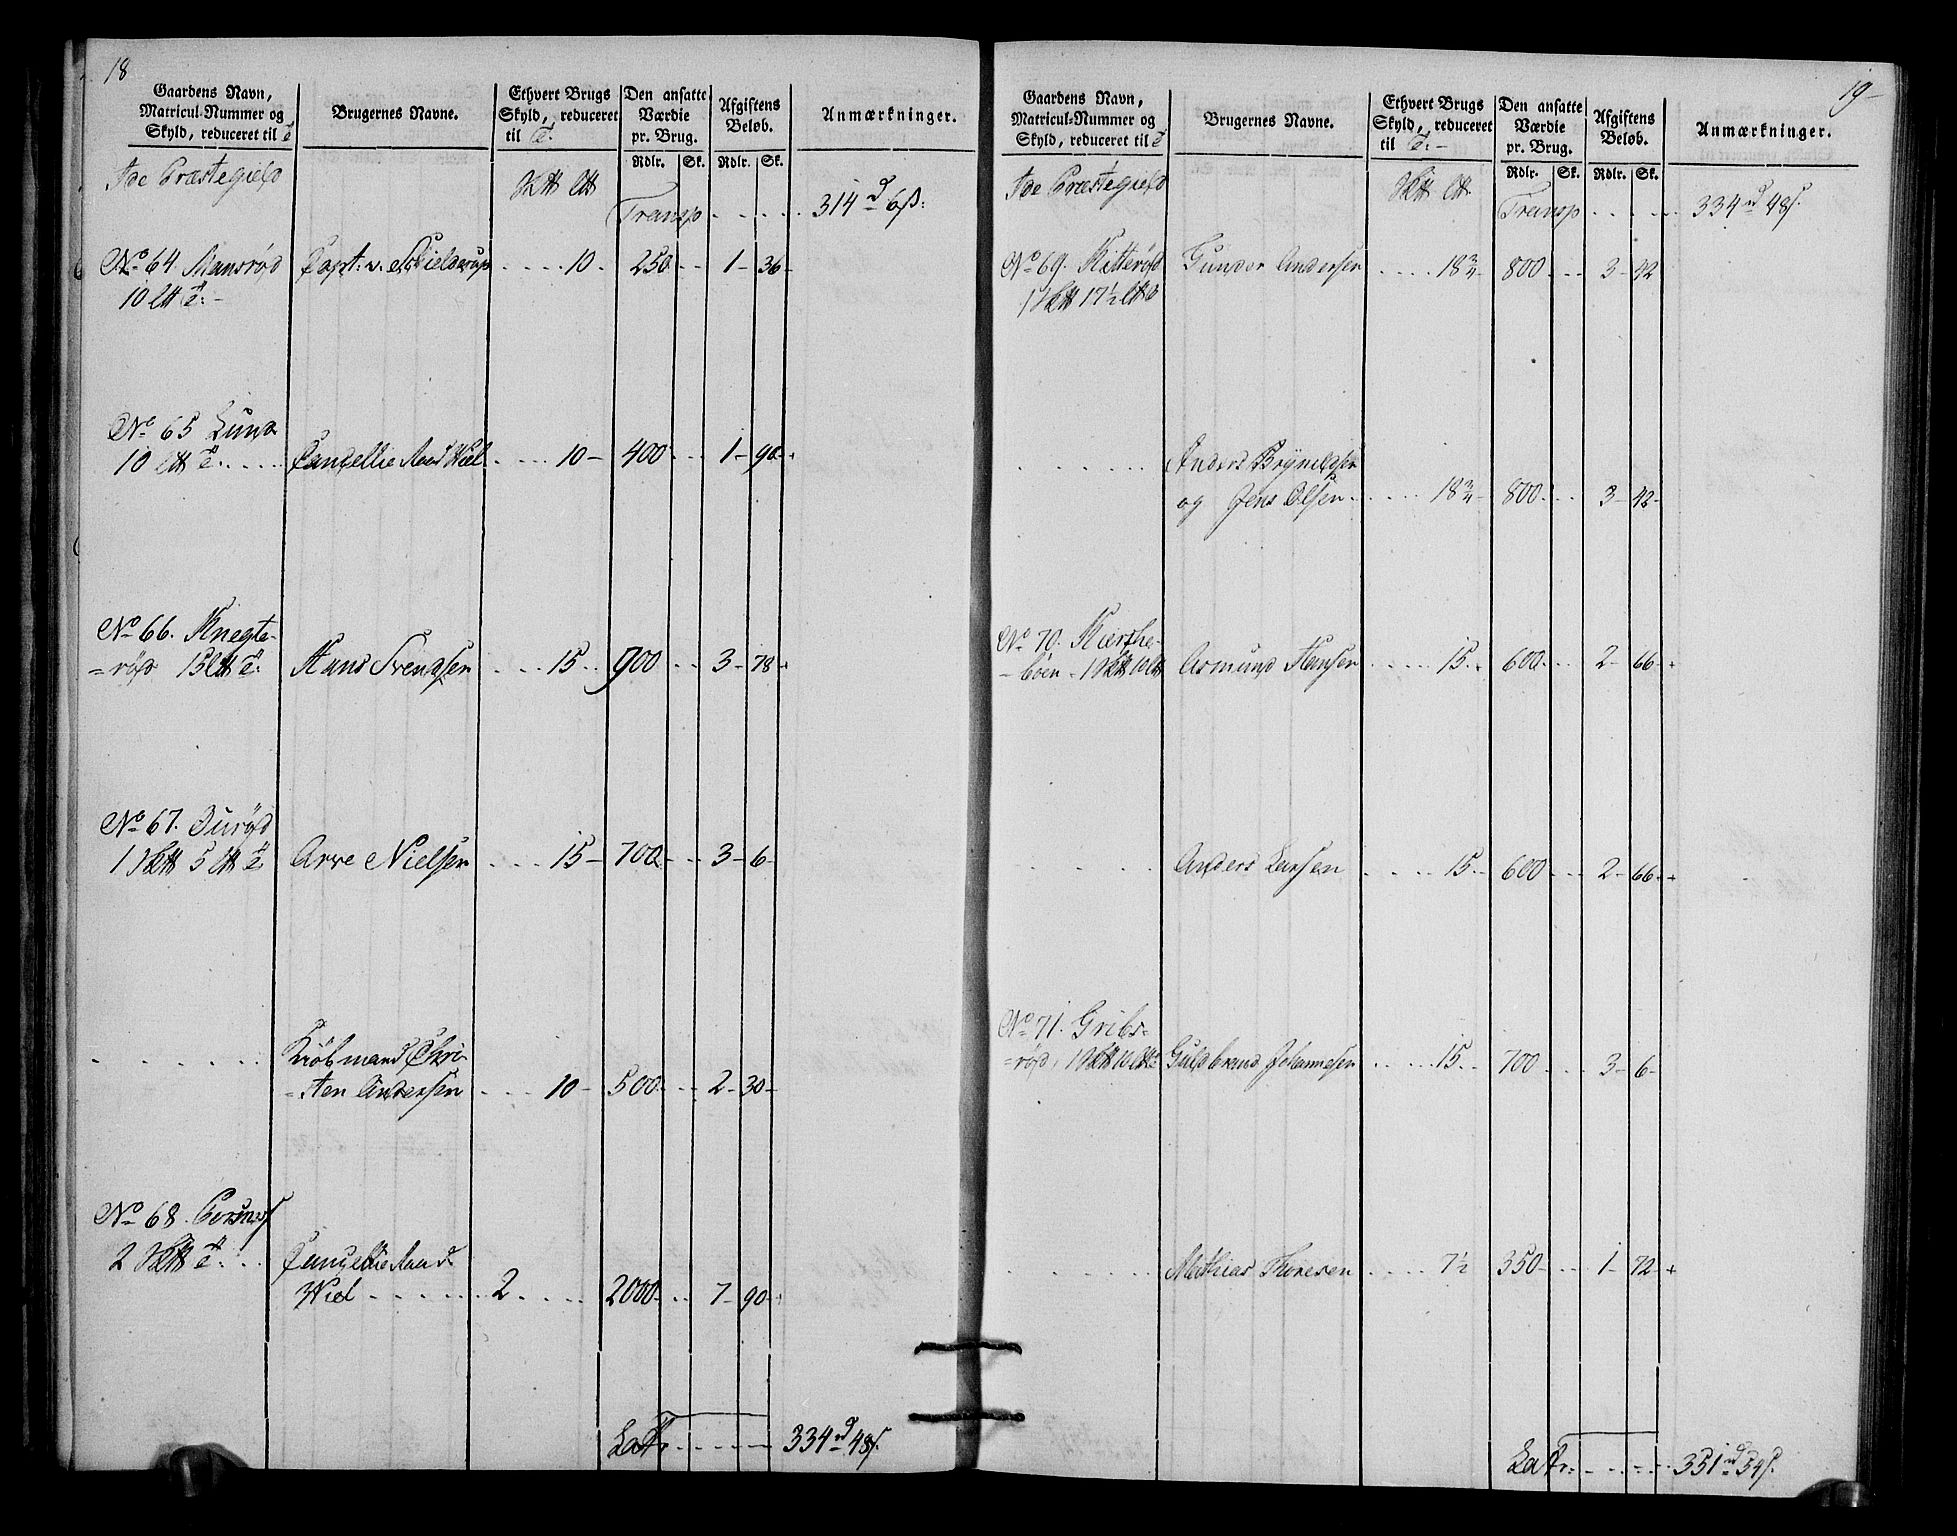 18
Gaardens Navn,
Matricul-Nummer og
Skyld, reduceret til
Brugernes Navne.
Ethvert Brugs
Skyld, reduceret
til
Den ansatte
Værdie
pr. Brug.
Rdlr. Sk.
Afgiftens
Beløb.
Rdlr. Sk.
Anmærkninger.
Ide Præstegield
Transp . . . . . 314 rd 6 ß:
No 64 Mansrød Capt: v. . . . . 10 . 250 . . 1 - 36 -
10
No 65 Lund
10 Cancellie Raad Wiel . . . . 10 - 400 . . 1 - 90 -
No 66. Knegte-
=rød 15 Hans Svendsen . . . 15 . . 900 . . 3 - 78 -
No 67.
1 5 Arve Nielsen . . . 15 - 700 . . 3 - 6 -
Kiöbmand Chri-
-sten Andersen . . . 10 - 500 . . 2 - 30 -
No 68.
2 Cancellie Raad
Wiel . . . . . . 2 . . . . 2000 . . 7 - 90 -
Latr . . . . . 334 rd 48 s.
19-
Gaardens Navn,
Matricul-Nummer og
Skyld, reduceret til
Brugernes Navne.
Ethvert Brugs
Skyld, reduceret
til
Den ansatte
Værdie
pr. Brug.
Rdlr. Sk.
Afgiftens
Beløb.
Rdlr. Sk.
Anmærkninger.
Ide Præstegield
Transp . . . . . 334 rd 48 s.
No 69. Kitterød Gunder Andersen . . . . 18 3/4 - 800 . . . 3 - 42
1 17 1/2
Anders Brynildsen
og Jens Olsen . . . . . 18 3/4 - 800 . . . 3 - 42 -
No 70. Kierche-
-böen - 1 10 Asmund Hansen . . . . 15 . . 600 . . . 2 - 66 -
Anders Larsen . . . . 15 . . 600 . . . 2 - 66 -
No 71. Gribs-
=rød, 1 10 Guldbrand Johannesen . . . . 15 . . 700 . . . 3 - 6 -
Mathias Thoresen . . . . 7 1/2 350 - . . 1 - 72 -
Latr: . . . . . 351 rd 54 s.